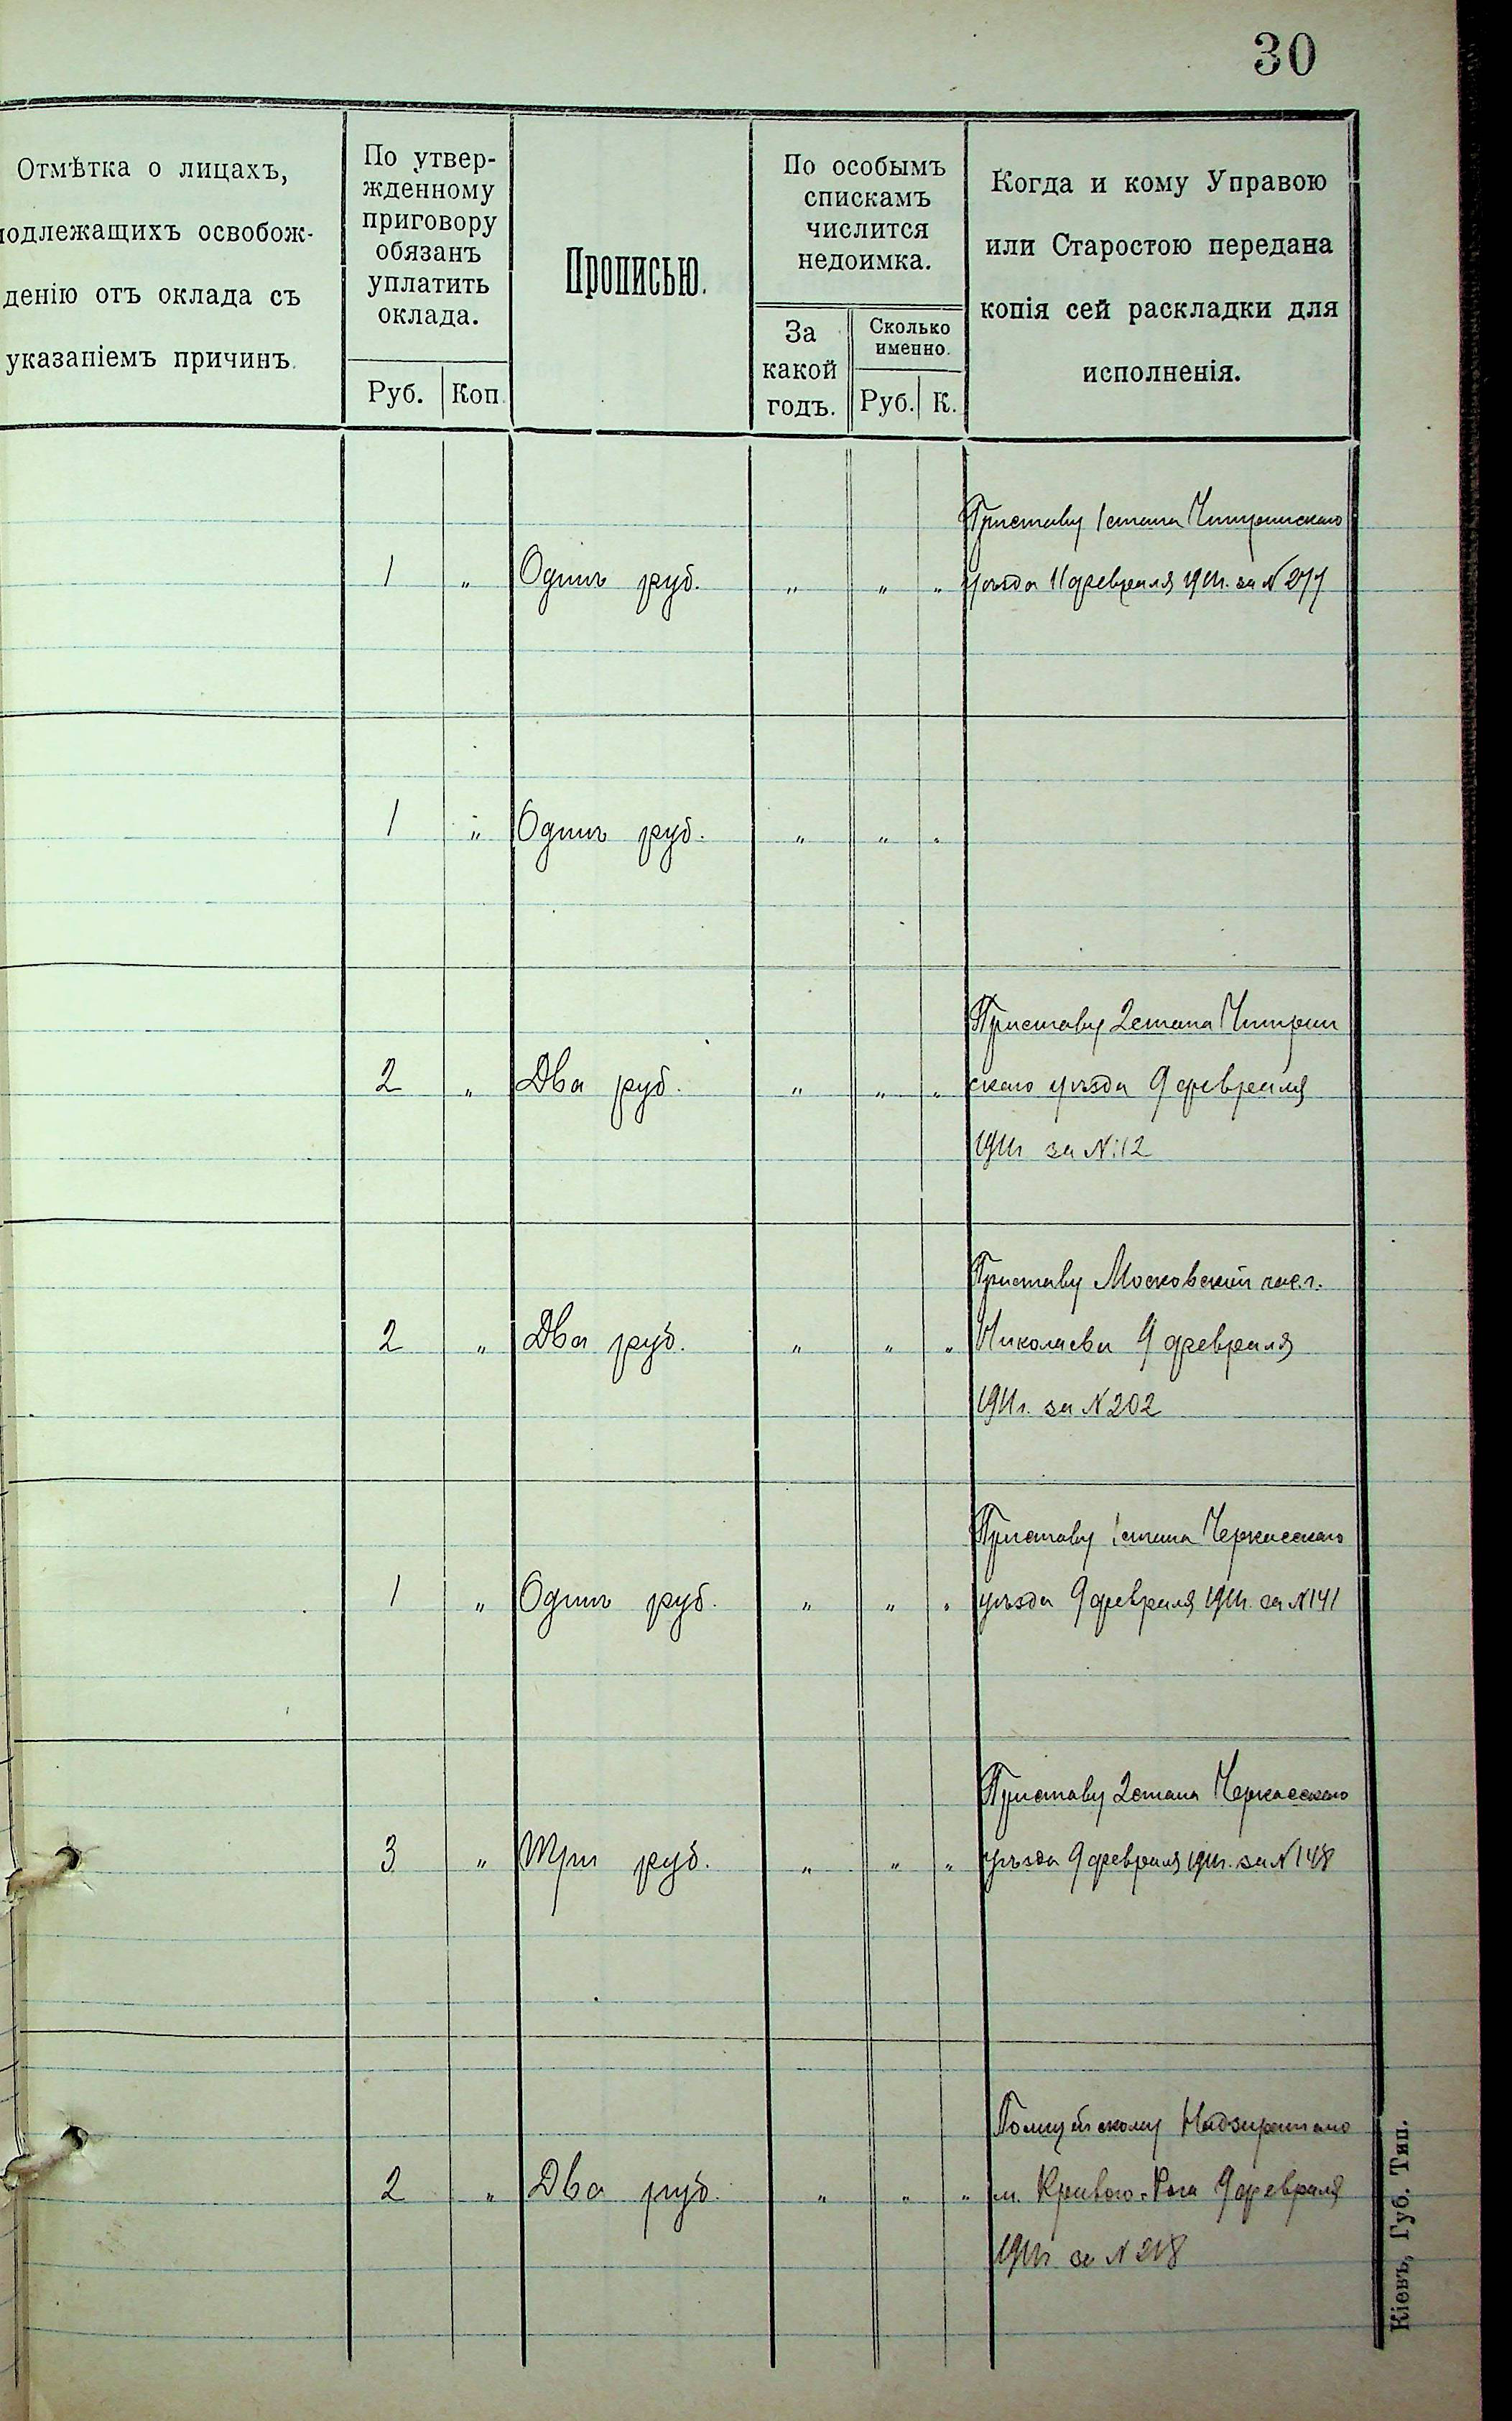 30
Отмѣтка о лицахъ,
подлежащихъ освобож-
денію отъ оклада съ
указаніемъ причинъ.
По утвер-
жденному
приговору
обязанъ
уплатить
оклада.
Руб. Коп.
Прописью.
По особымъ
спискамъ
числится
недоимка.
За
какой
годъ.
Сколько
именно.
Руб. К.
Когда и кому Управою
или Старостою передана
копія сей раскладки для
исполненія.
Приставу 1 стана Чигиринскаго
1 „ Одинъ руб. „ „ „ уѣзда 11 февраля 1911г. за № 277
1 „ Одинъ руб. „ „ „
Приставу 2 стана Чигирин
2 „ Два руб. „ „ „ скаго уѣзда 9 февраля
1911г за №112
Приставу Московской част.
2 „ Два руб. „ „ „ Николаева 9 февраля
1911г. за № 202
Приставу 1 стана Черкасскаго
1 „ Одинъ руб. „ „ „ уѣзда 9 февраля 1911г. за №141
Приставу 2 стана Черкасскаго
3 „ Три руб. „ „ „ уѣзда 9 февраля 1911г. за №148
Полицейскому Надзирателю
2 „ Два руб. „ „ „ м. Кривого-Рога 9 февраля
1911г за № 218
Кіевъ, Губ. Тип.